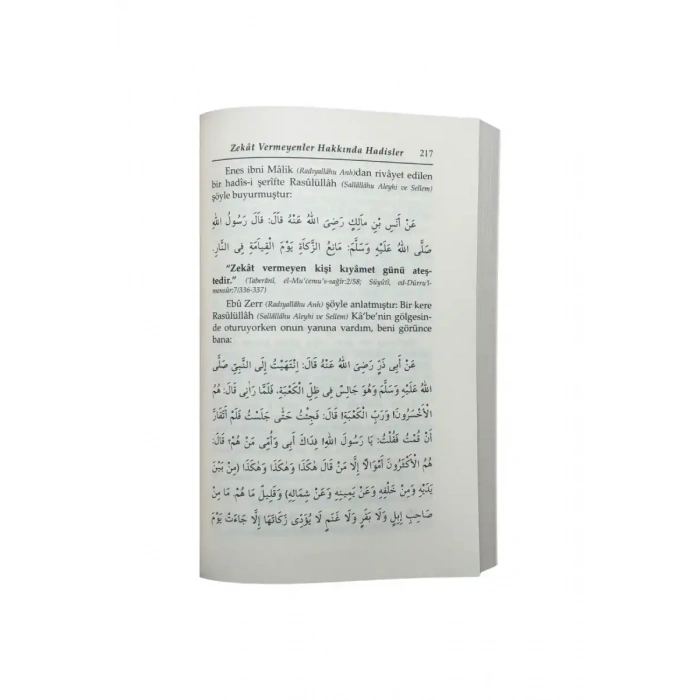 Zekât Vermeyenler Hakkında Hadisler 217
Enes ibni Mâlik (Radıyallâhu Anh)dan rivâyet edilen
bir hadîs-i şerîfte Rasûlüllâh (Sallâllâhu Aleyhi ve Sellem)
şöyle buyurmuştur:
عَنْ أَنَسِ بْنِ مَالِكٍ رَضِىَ اللهُ عَنْهُ قَالَ: قَالَ رَسُولُ اللهِ
صَلَّى اللهُ عَلَيْهِ وَسَلَّمَ: مَانِعُ الزَّكَاةِ يَوْمَ الْقِيَامَةِ فِى النَّارِ.
“Zekât vermeyen kişi kıyâmet günü ateş-
tedir.” (Taberânî, el-Mu'cemu's-sağîr:2/58; Süyûtî, ed-Dürru'l-
mensûr:7/336-337)
Ebû Zerr (Radıyallâhu Anh) şöyle anlatmıştır: Bir kere
Rasûlüllâh (Sallâllâhu Aleyhi ve Sellem) Kâ'be'nin gölgesin-
de oturuyorken onun yanına vardım, beni görünce
bana:
عَنْ أَبِى ذَرٍّ رَضِىَ اللهُ عَنْهُ قَالَ: اِنْتَهَيْتُ إِلَى النَّبِىِّ صَلَّى
اللهُ عَلَيْهِ وَسَلَّمَ وَهُوَ جَالِسٌ فِى ظِلِّ الْكَعْبَةِ، فَلَمَّا رَاٰنِى قَالَ: هُمُ
الْأَخْسَرُونَ وَرَبِّ الْكَعْبَةِ! قَالَ: فَجِئْتُ حَتَّى جَلَسْتُ فَلَمْ أَتَقَارَّ
أَنْ قُمْتُ فَقُلْتُ: يَا رَسُولَ اللهِ! فِدَاكَ أَبِى وَأُمِّى مَنْ هُمْ؟ قَالَ:
هُمُ الْأَكْثَرُونَ أَمْوَالًا إِلَّا مَنْ قَالَ هٰكَذَا وَهٰكَذَا وَهٰكَذَا (مِنْ بَيْنِ
يَدَيْهِ وَمِنْ خَلْفِهِ وَعَنْ يَمِينِهِ وَعَنْ شِمَالِهِ) وَقَلِيلٌ مَا هُمْ. مَا مِنْ
صَاحِبِ إِبِلٍ وَلَا بَقَرٍ وَلَا غَنَمٍ لَا يُؤَدِّى زَكَاتَهَا إِلَّا جَاءَتْ يَوْمَ